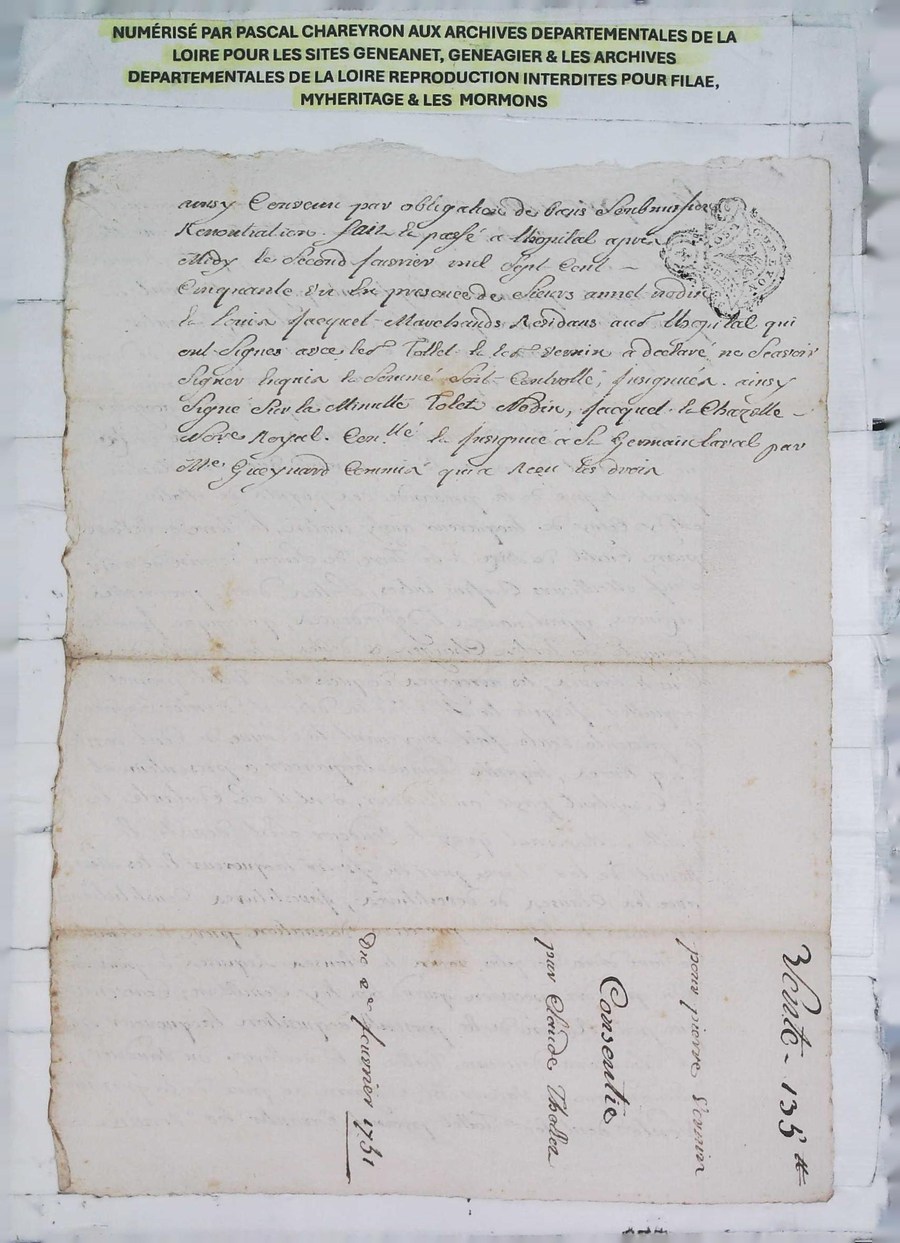 NUMÉRISÉ PAR PASCAL CHAREYRON AUX ARCHIVES DEPARTEMENTALES DE LA
LOIRE POUR LES SITES GENEANET, GENEAGIER & LES ARCHIVES
DEPARTEMENTALES DE LA LOIRE REPRODUCTION INTERDITES POUR FILAE,
MYHERITAGE & LES MORMONS
ainsy Convenu par obligation de biens Soubmission
Renontiation. fait & passé a Lhopital apres
Midy le Second fevrier mil Sept Cent
Cinquante un En presence de Sieurs annet nodin
& Louis Jacquet Marchands Residans aud Lhopital qui
ont Signés avec led Tollet & led vernin a déclaré ne Scavoir
Signer Enquis & Sommé Soit Controllé, Insinué. ainsy
Signé Sur la Minutte Tolet Nodin, Jacquet & Chazelle
No.re Royal. Con.llé & Insinué a St Germain Laval par
M.e Gueynard Commis qui a Receu les droits
Vente - 135 #
pour pierre Vernin
Consentie
par Claude Thollet
Du 2e fevrier 1751